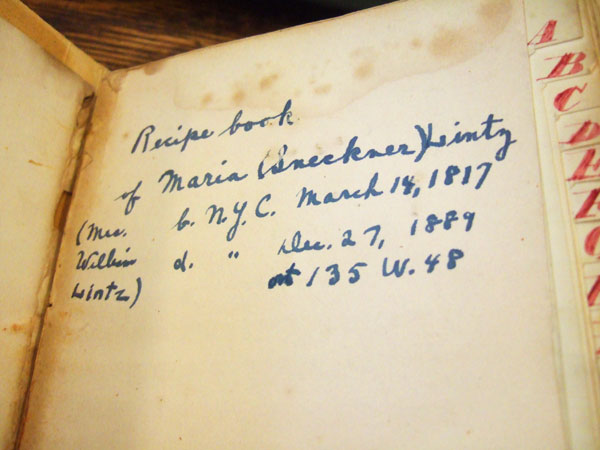 Recipe book
of Maria (Sneckner) Lintz
(Mrs. b. N.Y.C. March 14, 1817
Wilbur d. " Dec. 27, 1889
Lintz) at 135 W. 48
A
B
C
D
E
F
G